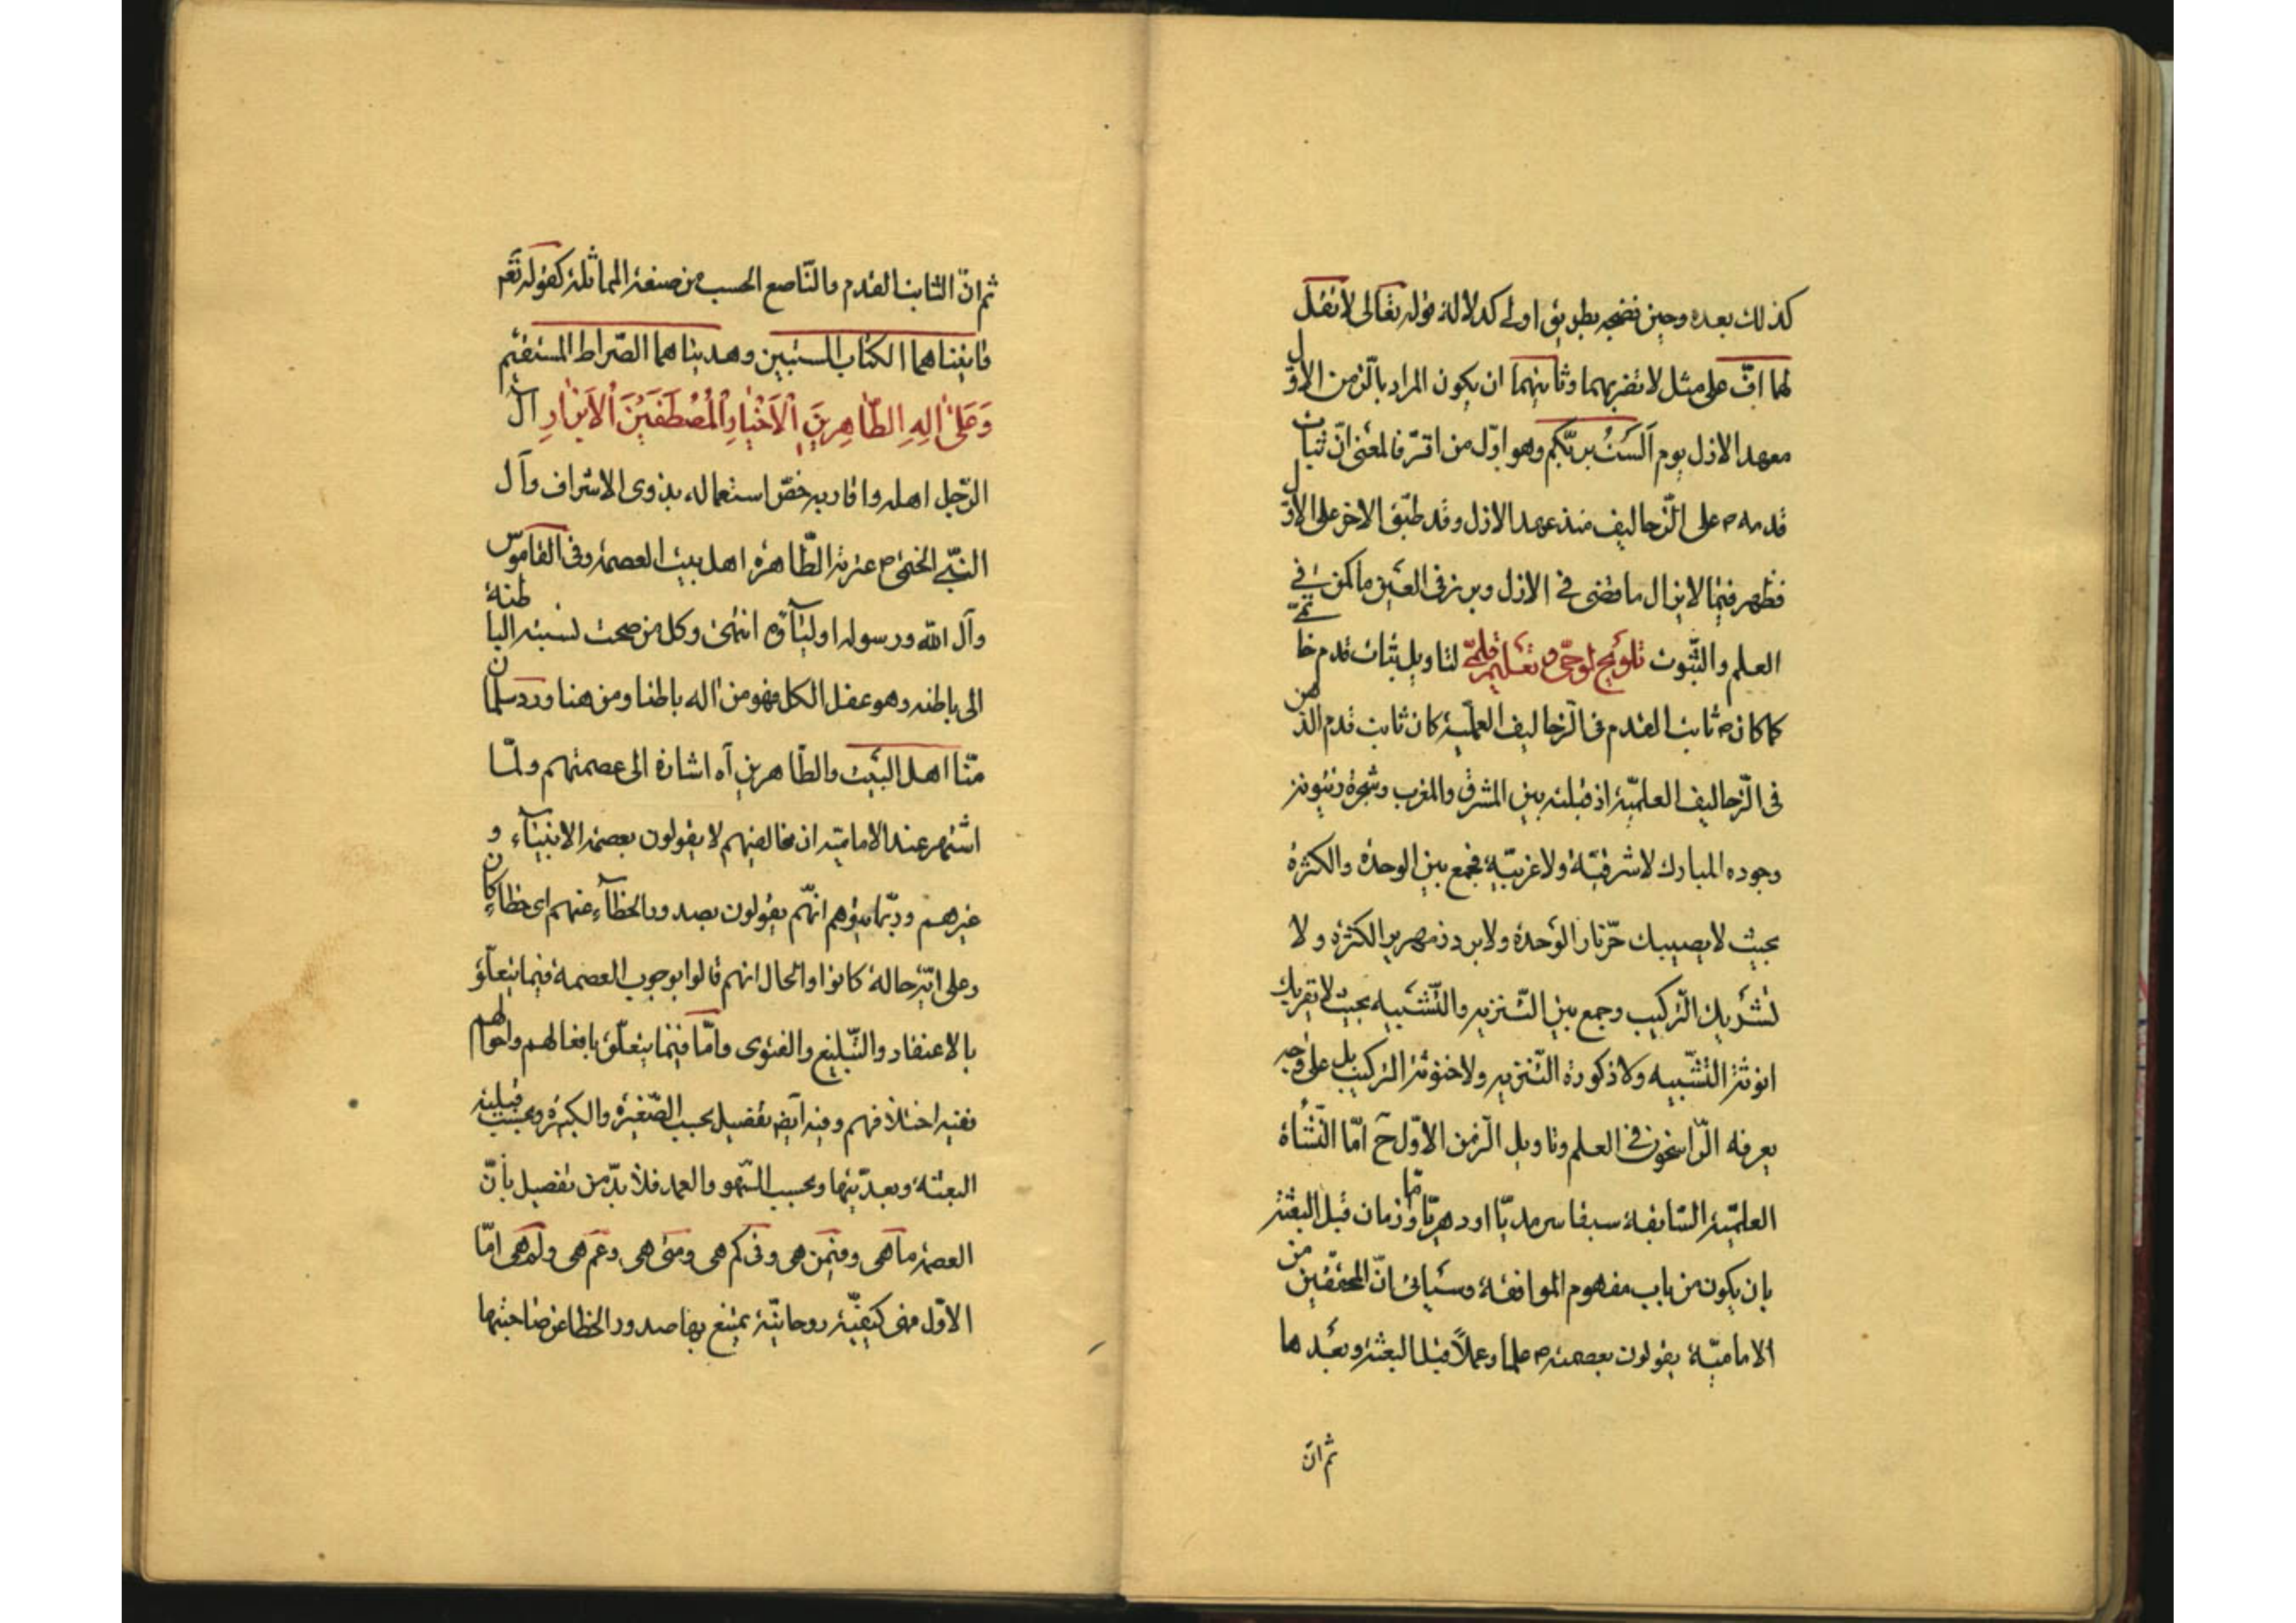 كذلك بعده وحين فضحه بطريق اولى كدلالة قوله تعالى لا تقل
لهما افّ على مثل لا تضربهما وثانيهما ان يكون المراد بالزّمن الاوّل
معهد الازل يوم اَلَسْتُ بربّكم وهو اوّل من اقرّ فالمعنى انّ ثبات
قدمه ص على الزّحاليف منذ عهد الازل وقد طبّق الاخر على الاوّل
فظهر فيما لايزال ما قضى فى الازل وبرز فى العين ما كمن فى
العلم والثّبوت تلويح لوحىّ و تعليم قلمىّ لتاويل ثبات قدم خاتميّ
كما كان ص ثابت القدم فى الزّحاليف العمليّة كان ثابت قدم الذّهن
فى الزّحاليف العلميّة اذ قبلته بين المشرق والمغرب وشجرة زيتونة
وجوده المبارك لا شرقيّة ولا غربيّة فجمع بين الوحدة والكثرة
بحيث لا يصيبك حرّ نار الوحدة ولا برد زمهرير الكثرة ولا
تشريك التّركيب وجمع بين التّنزيه والتّشبيه بحيث لا تعريك
انوثة التّشبيه ولا ذكورة التّنزيه ولا خنوثة التركيب بل على وجه
يعرفه الرّاسخون فى العلم وتاويل الزّمن الاوّل ح امّا النّشاة
العلميّة السّابقة سبقا سرمديّا او دهريّا وامّا زمان قبل البعثة
بان يكون من باب مفهوم الموافقة وسياتى انّ المحقّقين من
الاماميّة يقولون بعصمته ص علما وعملاً قبل البعثة وبعدها
ثم انّ
ثم انّ الثابت القدم والنّاصع الحسب من صنعة المماثلة كقوله تعم
فاتيناهما الكتاب المستبين وهديناهما الصّراط المستقيم
وَعَلىٰ الِهِ الطّاهِرينَ اْلاَخْيارِ اْلمُصْطَفَيْنَ اْلاَبْرارِ ال
الرّجل اهله واقاربه خصّ استعماله بذوى الاشراف وآل
النبّى الختمى ص عترته الطّاهرة اهل بيت العصمة وفى القاموس
وآل اللّه ورسوله اوليآؤه انتهى وكل من صحت نسبته الباطنة
الى باطنه وهو عقل الكل فهو من اله باطنا ومن هنا ورد سلمان
منّا اهل البيت والطّاهرين آه اشارة الى عصمتهم ولمّا
اشتهر عند الاماميّة ان مخالفيهم لا يقولون بعصمة الانبيآء و
غيرهم وربّما يتوهم انهّم يقولون بصدور الخطآء عنهم اى خطاء كان
وعلى ايّة حالة كانوا والحال انهم قالوا بوجوب العصمة فيما يتعلّق
بالاعتقاد والتّبليغ والفتوى وامّا فيما يتعلّق بافعالهم واحوالهم
ففيه اختلافهم وفيه ايض تفصيل بحسب الصّغيرة والكبيرة وبحسب قبلية
البعثة وبعديّتها وبحسب السّهو والعمد فلا بدّ من تفصيل بأنّ
العصمة ما هى وفيمن هى وفى كم هى ومتى هى وعمّ هى ولم هى امّا
الاوّل فهى كيفيّة روحانيّة يمتنع بها صدور الخطا عن صاحبتها